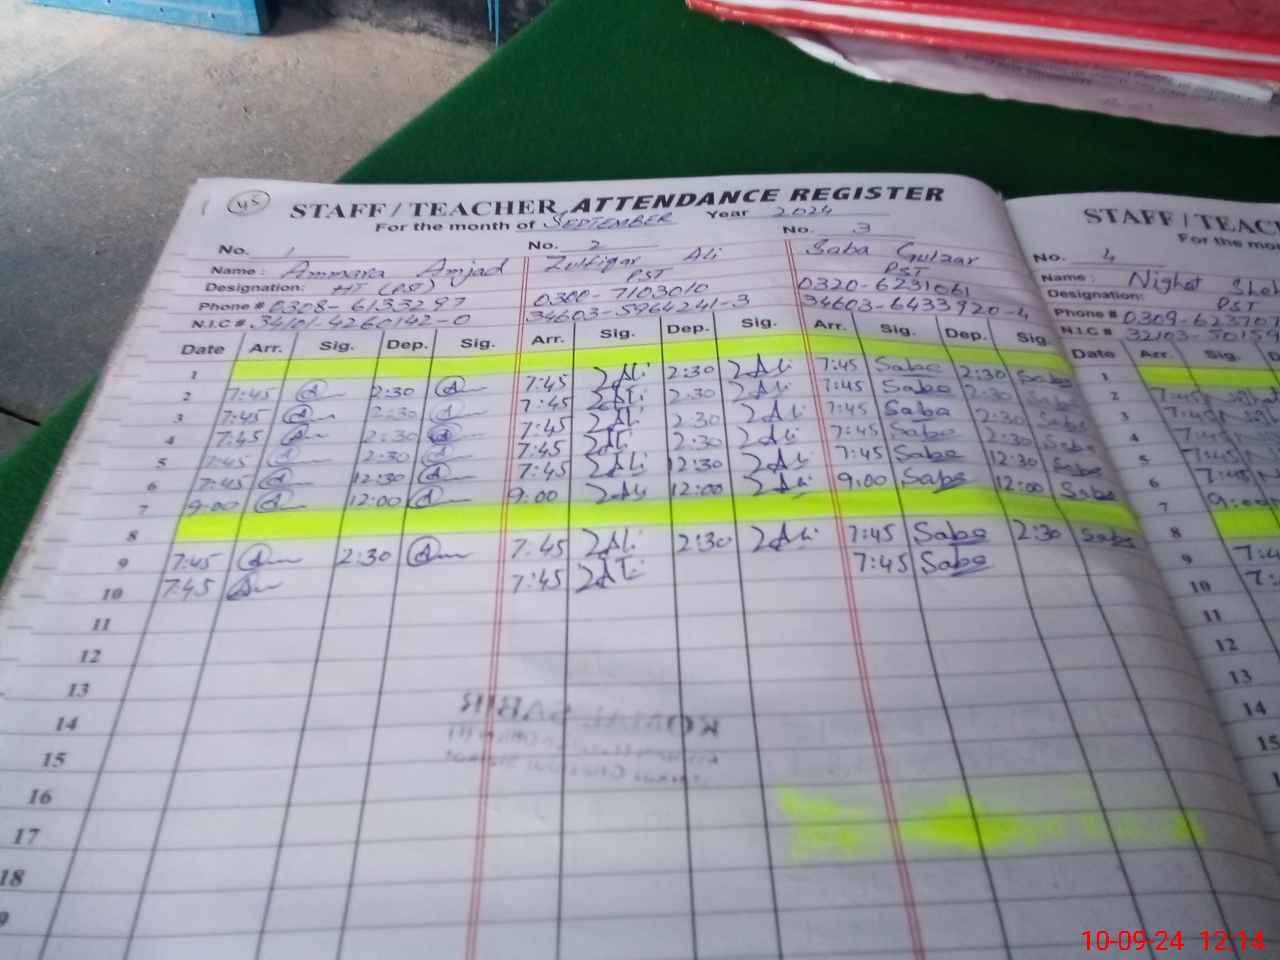 45
STAFF / TEACHER ATTENDANCE REGISTER
For the month of SEPTEMBER Year 2024
No. 1 No. 2 No. 3
Name: Ammara Amjad Zulfiqar Ali Saba Gulzar
Designation: HT (PST) PST PST
Phone # 0308-6133297 0300-7103010 0320-6231061
N.I.C #. 34101-4260142-0 34603-5964241-3 34603-6433920-4
Date Arr. Sig. Dep. Sig. Arr. Sig. Dep. Sig. Arr. Sig. Dep. Sig.
1
2 7:45 2:30 7:45 Ali 2:30 Ali 7:45 Saba 2:30 Saba
3 7:45 2:30 7:45 Ali 2:30 Ali 7:45 Saba 2:30 Saba
4 7:45 2:30 7:45 Ali 2:30 Ali 7:45 Saba 2:30 Saba
5 7:45 2:30 7:45 Ali 2:30 Ali 7:45 Saba 2:30 Saba
6 7:45 12:30 7:45 Ali 12:30 Ali 7:45 Saba 12:30 Saba
7 9:00 12:00 9:00 Ali 12:00 Ali 9:00 Saba 12:00 Saba
8
9 7:45 2:30 7:45 Ali 2:30 Ali 7:45 Saba 2:30 Saba
10 7:45 7:45 Ali 7:45 Saba
11
12
13
14
15
16
17
18
STAFF / TEAC
For the mon
No. 4
Name: Nighat
Designation: PST
Phone # 0309-62370
N.I.C # 32103-50154
Date Arr. Sig.
1
2 7:45
3 7:45
4 7:45
5 7:45
6 7:45
7 9:00
8
9 7:4
10 7:
11
12
13
14
15
16
17
10-09-24 12:14